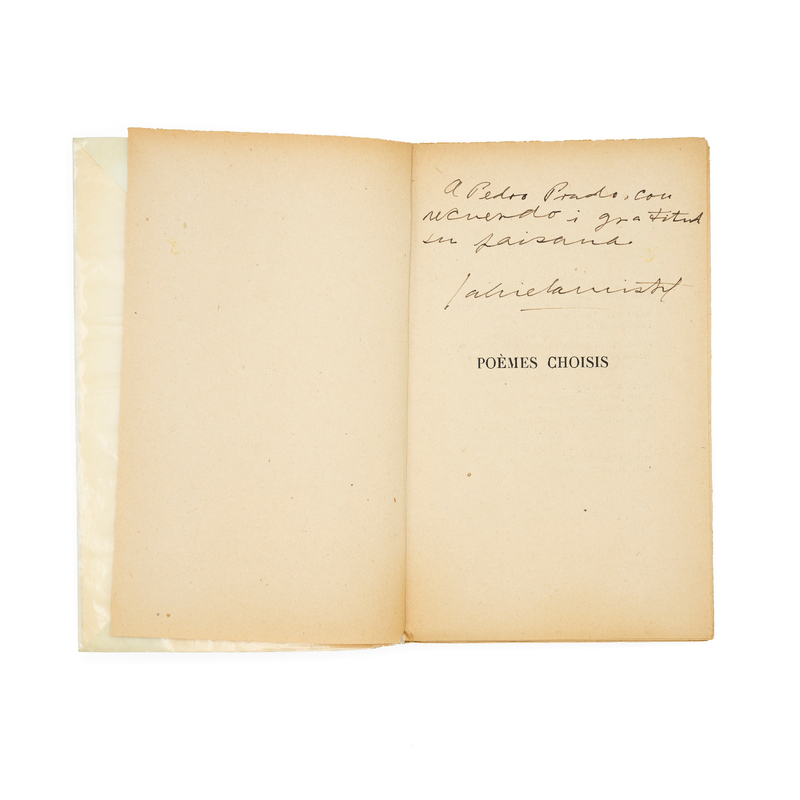 A Pedro Prado, con
recuerdo i gratitud
su paisana
Gabriela Mistral
POÈMES CHOISIS